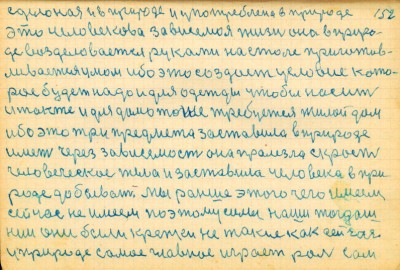 сделоная и в природе и употреблена в природе 152
это человекова зависемоя жизни она в приро-
де возделовается руками на столе приготов-
ливается углом ибо это создает целовие кото-
рое будет надо и для одежды чтобы носить
и такте и для домо тоже требуется жилой дом
ибо это три предмета заставила в природе
иметь через зависемость она пролезла скрость
человеческое тела и заставила человека в при
роде добывать. Мы раньше этого чего имеем
сейчас не имеем поэтому силы наши тогдаш
нии они были крепки не такие как сейчас
у природе самое главное играет рол сам